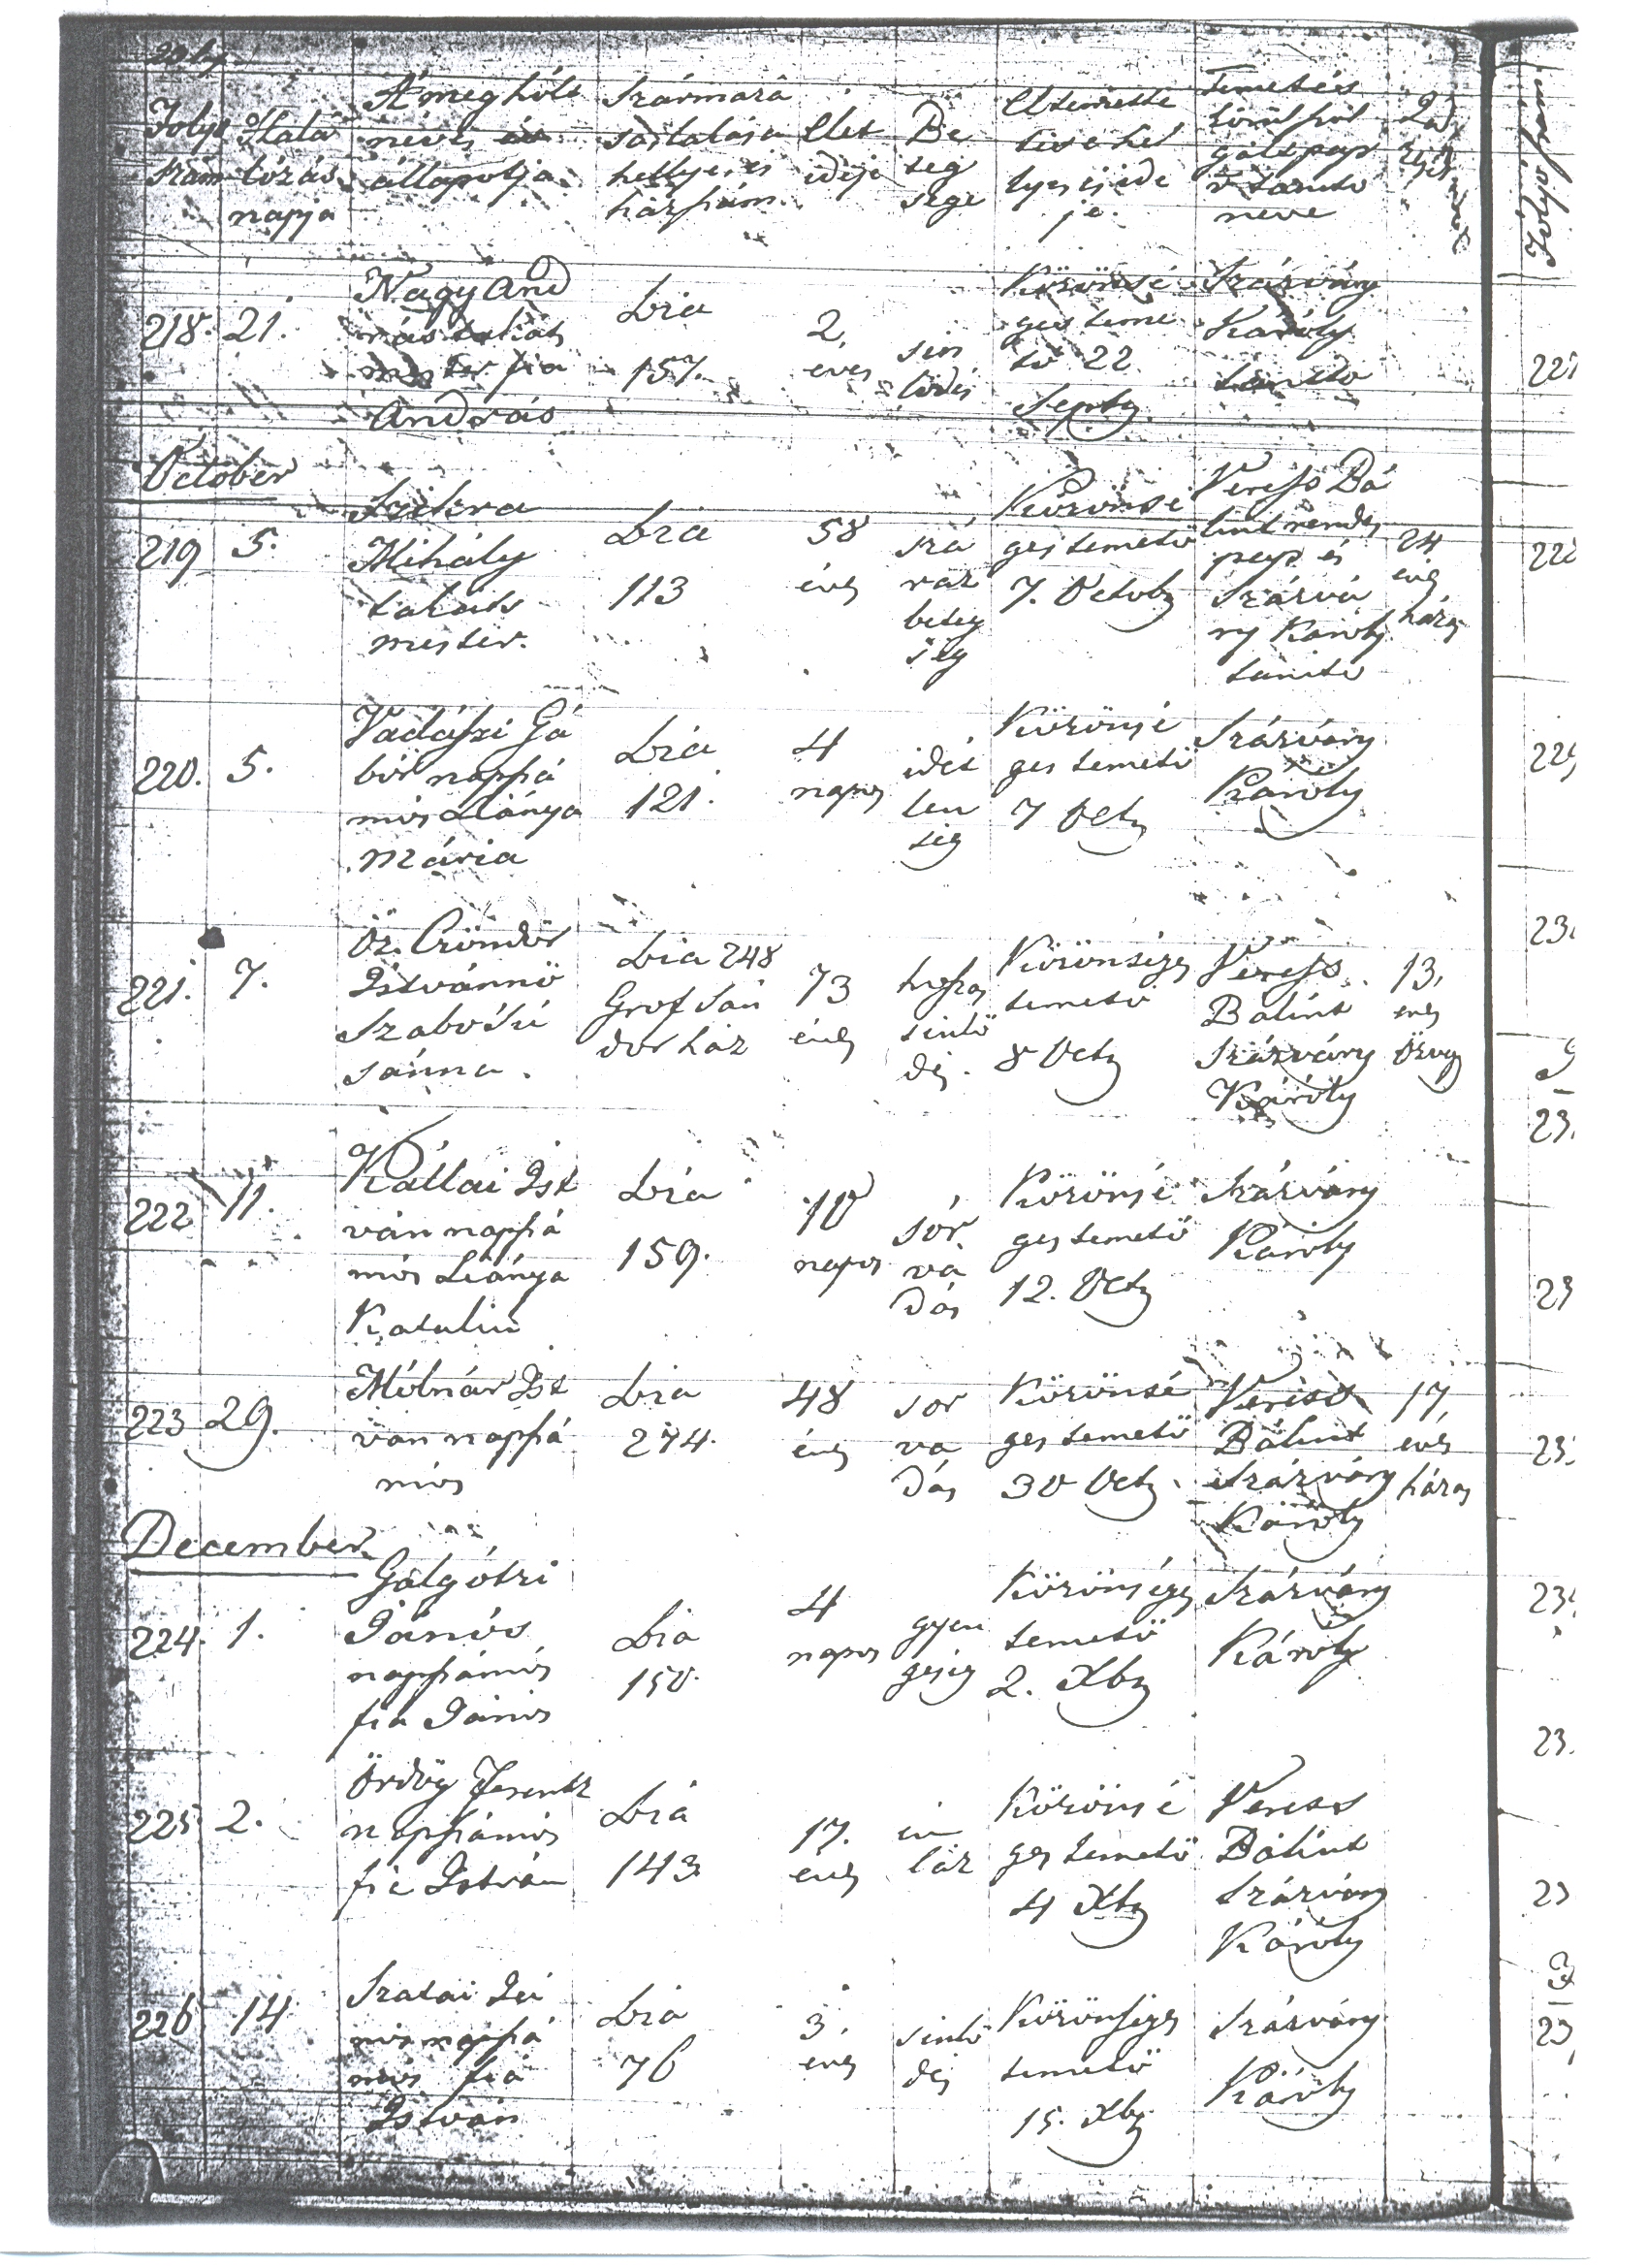 Folyó Halá A' meghólt Származá Élet Be Eltemette Temetés
szám lózás neve és sa s lakása ideje teg tése hel körül szol
napja állapotja hellye és sége lyes és ide gált pap
házszám je. s tanito
neve
218. 21. Nagy And
rás takáts
mester fia
András
Bia
157.
2.
eves
sin
lödés
Közönsé
ges teme
tő 22
Septbr
Szárvány
Károly
tanito
October
219 5. Szikra
Mihály
takáts
mester.
Bia
113
58
éves
szá
raz
beteg
ség
Közönsé
ges temető
7. Octobr
Veress Bá
lint rendes
pap és
Szárvá
ny Károly
tanito
24
évig
házas
220. 5. Vadászi Gá
bor napszá
mos Leánya
Mária
Bia
121.
4
napos
idét
len
ség
Közönsé
ges temető
7 Octr
Szárvány
Károly
221. 7. Öz. Czöndör
Istvánné
Szabó Su
sánna.
Bia 248
Gróf Sán
dor ház
73
éves
hoszas
sinlő
dés.
Közönséges
temető
8 Octr
Veress
Bálint
Szárvány
Károly
13.
eves
özvegy
222 11. Kállai Ist
ván napszá
mos Leánya
Katalin
Bia
159.
10
napos
sór
va
dás
Közönsé
ges temető
12. Octr
Szárvány
Károly
223 29. Mólnár Ist
ván napszá
mos
Bia
274.
48
éves
sor
va
dás
Közönsé
ges temető
30 Octr.
Veress
Bálint
Szárvány
Károly
17
évés
házas
December
224. 1. Galgótzi
János
napszámos
fia János
Bia
150.
4
napos
gyen
geség
Közönséges
temető
2. Xbr
Szárvány
Károly
225 2. Ördög Ferentz
napszámos
fia István
Bia
143
17.
eves
láz
Közönsé
ges temető
4 Xbr
Veress
Bálint
Szárvány
Károly
226 14 Szatai Já
nos napszá
mos fia
István
Bia
76
3.
eves
sinlő
dés
Közönséges
temető
15. Xbr
Szárvány
Károly
Folyó szám